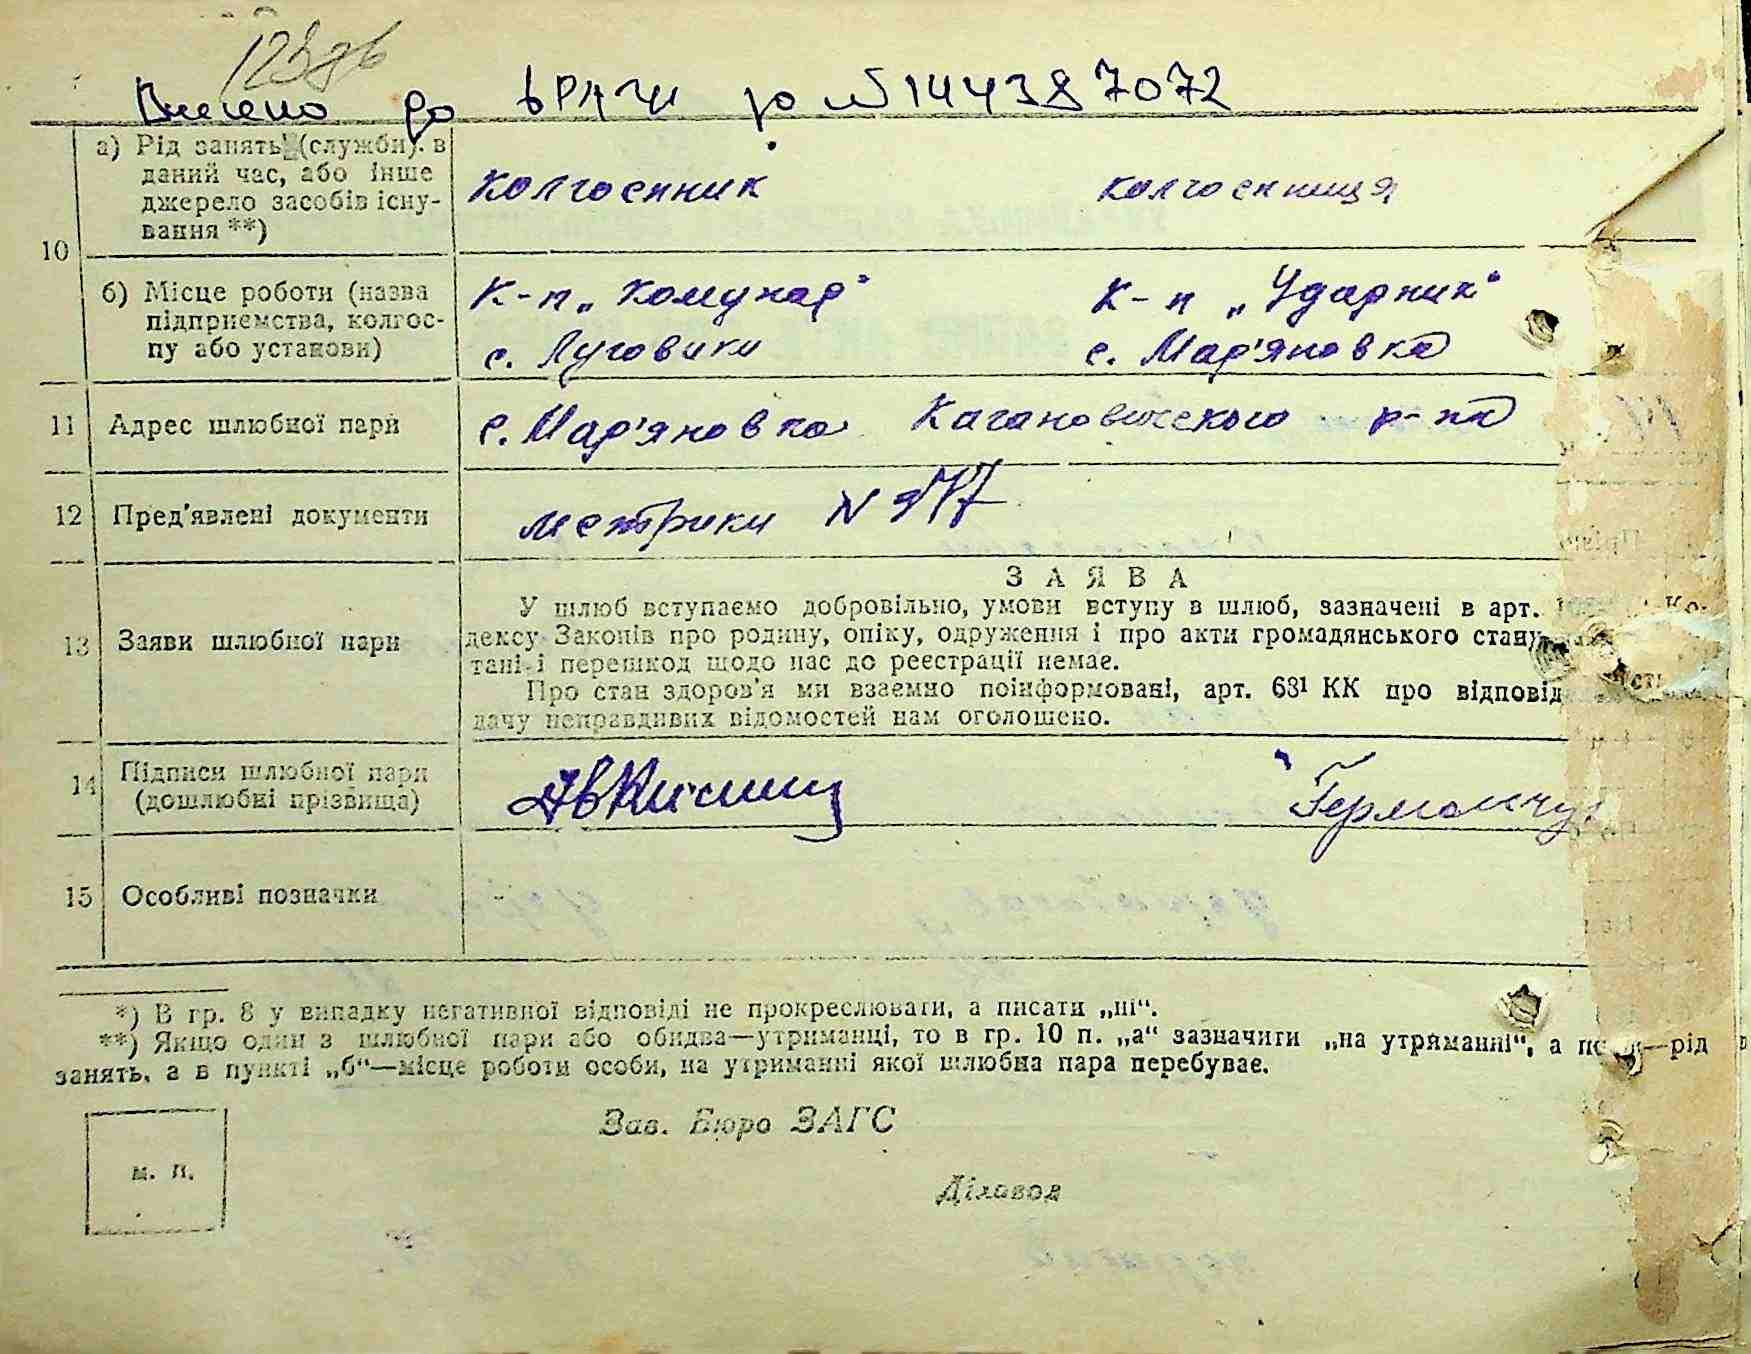 Внесено до ДРАЦС за № 14438 7072
а) Рід занять (служби) в
даний час, або інше
джерело засобів існу-
вання **)
колгоспник колгоспниця
10
б) Місце роботи (назва
підприємства, колгос-
пу або установи)
К-п „Комунар" К-п „Ударник"
с. Луговики с. Мар'яновка
11 Адрес шлюбної пари с. Мар'яновка Кагановического р-на
12 Пред'явлені документи метрики N
ЗАЯВА
У шлюб вступаємо добровільно, умови вступу в шлюб, зазначені в арт. Ко-
13 Заяви шлюбної пари дексу Законів про родину, опіку, одруження і про акти громадянського стану
тані і перешкод щодо нас до реєстрації немає.
Про стан здоров'я ми взаємно поінформовані, арт. 68¹ КК про відповід
дачу неправдивих відомостей нам оголошено.
14 Підписи шлюбної пари
(дошлюбні прізвища)
15 Особливі позначки -
*) В гр. 8 у випадку негативної відповіді не прокреслювати, а писати „ні".
**) Якщо один з шлюбної пари або обидва—утриманці, то в гр. 10 п. „а" зазначити „на утриманні", а —рід
занять, а в пункті „б"—місце роботи особи, на утриманні якої шлюбна пара перебуває.
Зав. Бюро ЗАГС
м. п.
Діловод